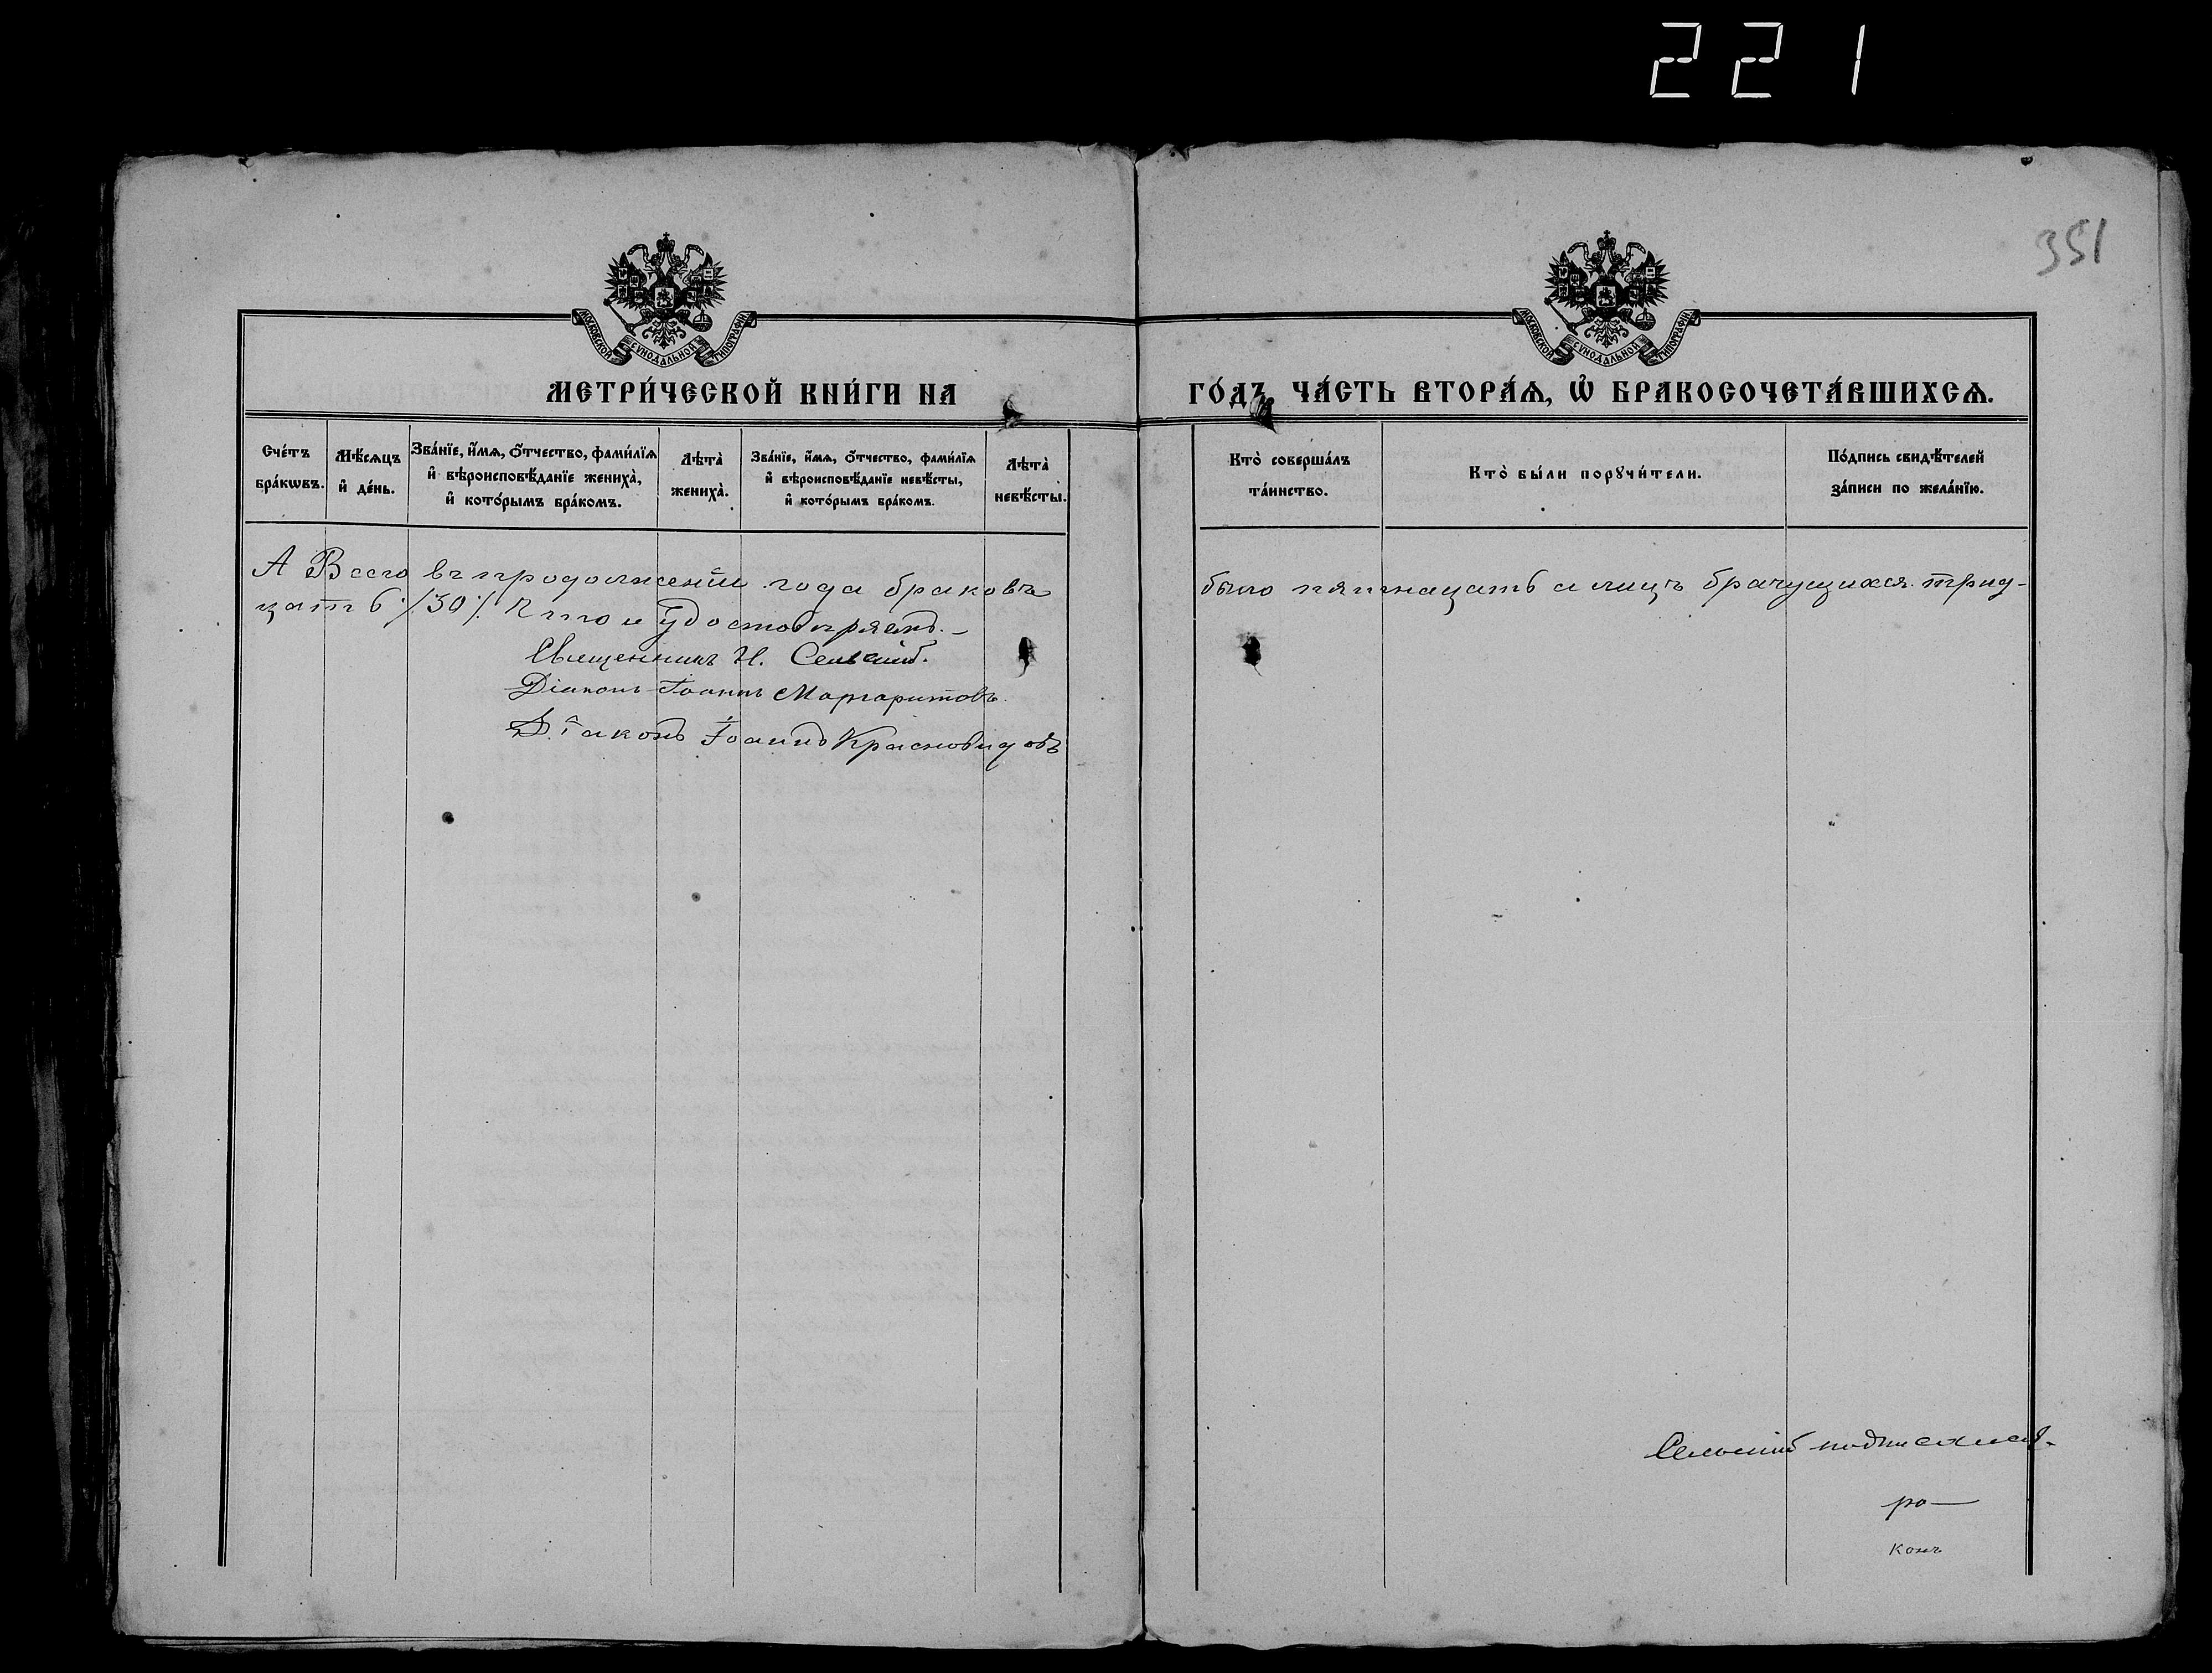 221
351
МОСКОВСКОЙ СУНОДАЛЬНОЙ ТИПОГРАФІИ
МОСКОВСКОЙ СУНОДАЛЬНОЙ ТИПОГРАФІИ
МЕТРИ́ЧЕСКОЙ КНИ́ГИ НА
ГО́ДЪ, ЧА́СТЬ ВТОРА́Ѧ, Ѡ҆ БРАКОСОЧЕТА́ВШИХСѦ.
Сче́тъ
бра́кѡвъ.
Мѣ́сѧцъ
и҆ де́нь.
Зва́нїе, и҆́мѧ, ѻ҆́тчество, фами́лїѧ
и҆ вѣроисповѣ́данїе жениха̀,
и҆ кото́рымъ бра́комъ.
Лѣта̀
жениха̀.
Зва́нїе, и҆́мѧ, ѻ҆́тчество, фами́лїѧ
и҆ вѣроисповѣ́данїе невѣ́сты,
и҆ кото́рымъ бра́комъ.
Лѣта̀
невѣ́сты.
Кто̀ соверша́лъ
та́инство.
Кто̀ бы́ли порꙋчи́тели.
По́дпись свидѣ́телей
за́писи по жела́нїю.
А Всего въ продолженіи года браковъ
было пятнацать а лицъ брачущихся трид-
цать /30/. Что и удостовѣряемъ.
Священникъ Н. Сельскій.
Діаконъ Іоаннъ Маргаритовъ.
Діаконъ Іоаннъ Красновидовъ
Сельскій подписался.
ро—
конъ